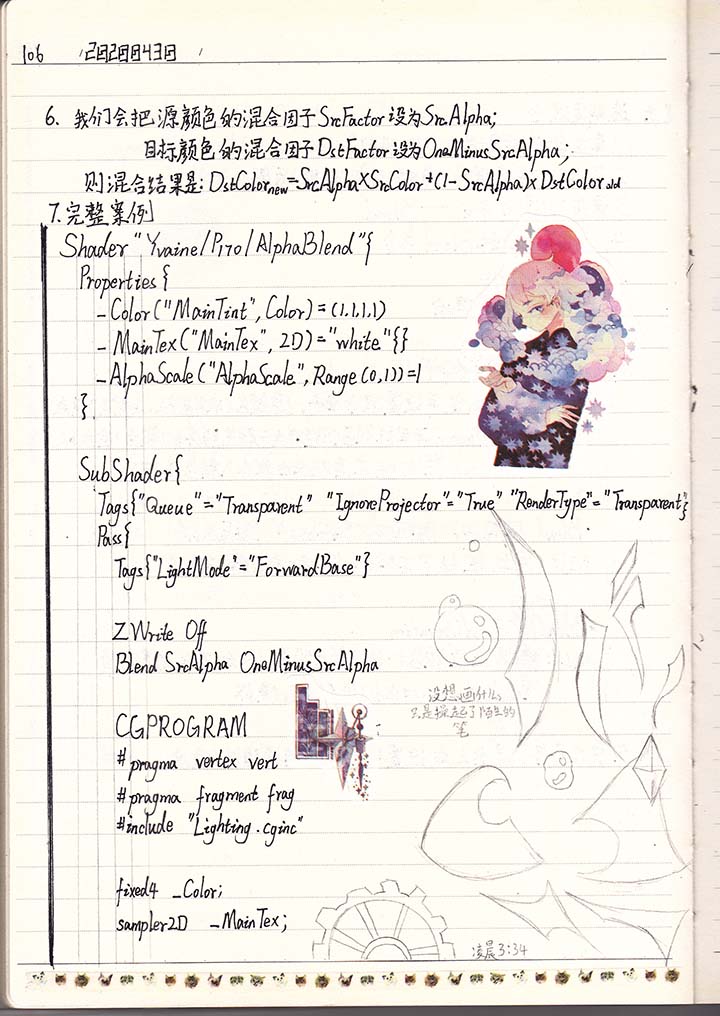 106 2020 0430
6. 我们会把源颜色的混合因子SrcFactor设为SrcAlpha;
目标颜色的混合因子DstFactor设为OneMinusSrcAlpha;
则混合结果是: DstColornew=SrcAlpha×SrcColor+(1-SrcAlpha)×DstColorold
7.完整案例
Shader "Yvaine/P170/AlphaBlend"{
Properties{
_Color("MainTint", Color)=(1.1.1.1)
_MainTex("MainTex", 2D)="white"{}
_AlphaScale("AlphaScale", Range(0,1))=1
}
SubShader{
Tags{"Queue"="Transparent" "IgnoreProjector"="True" "RenderType"="Transparent"}
Pass{
Tags{"LightMode"="ForwardBase"}
ZWrite Off
Blend SrcAlpha OneMinusSrcAlpha
没想画什么
只是拿起了陌生的
笔
CGPROGRAM
#pragma vertex vert
#pragma fragment frag
#include "Lighting.cginc"
fixed4 _Color;
sampler2D _MainTex;
凌晨3:34